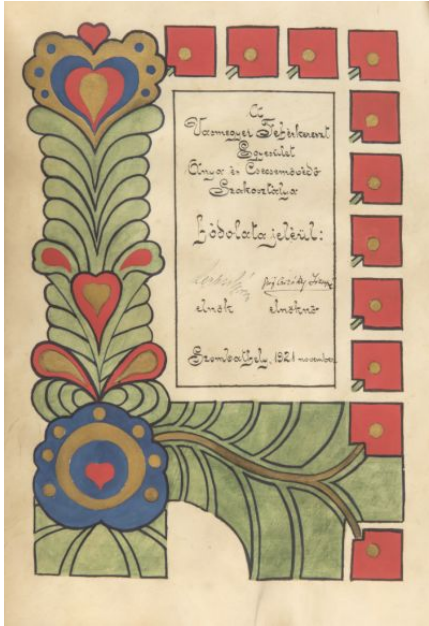 A
Vasmegyei Fehérkereszt
Egyesület
Anya és Csecsemővédő
Szakosztálya
hódolata jeléül:
elnök elnöknő
Szombathely, 1921 november